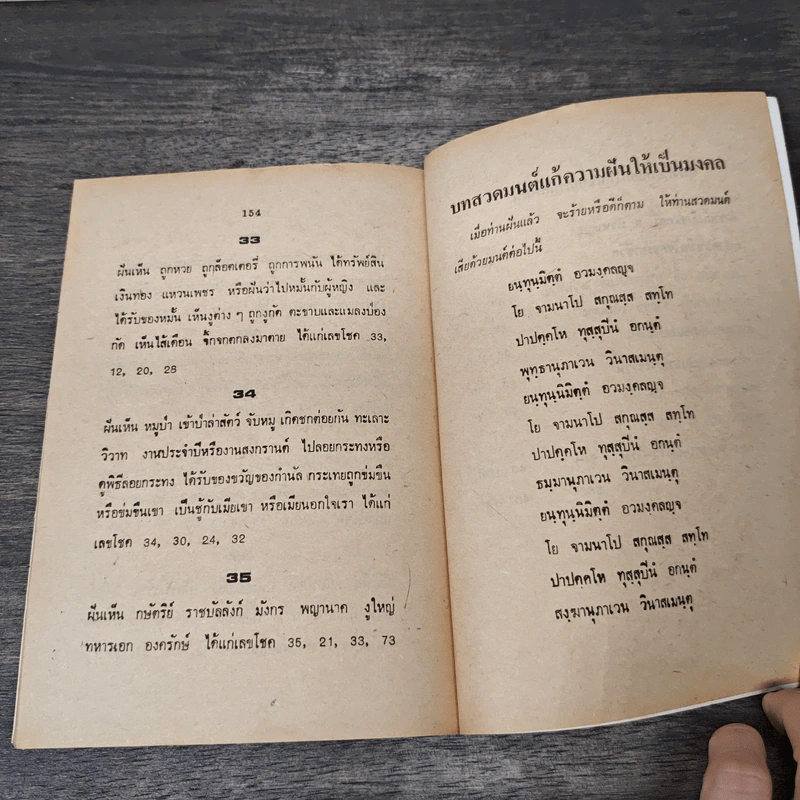 154
33
ฝันเห็น ถูกหวย ถูกล็อตเตอรี่ ถูกการพนัน ได้ทรัพย์สิน
เงินทอง แหวนเพชร หรือฝันว่าไปหมั้นกับผู้หญิง และ
ได้รับของหมั้น เห็นงูต่าง ๆ ถูกงูกัด ตะขาบและแมลงป่อง
กัด เห็นไส้เดือน จิ้งจกตกลงมาตาย ได้แก่เลขโชค 33,
12, 20, 28
34
ฝันเห็น หมูป่า เข้าป่าล่าสัตว์ จับหมู เกิดชกต่อยกัน ทะเลาะ
วิวาท งานประจำปีหรืองานสงกรานต์ ไปลอยกระทงหรือ
ดูพิธีลอยกระทง ได้รับของขวัญของกำนัล กระเทยถูกข่มขืน
หรือข่มขืนเขา เป็นชู้กับเมียเขา หรือเมียนอกใจเรา ได้แก่
เลขโชค 34, 30, 24, 32
35
ฝันเห็น กษัตริย์ ราชบัลลังก์ มังกร พญานาค งูใหญ่
ทหารเอก องครักษ์ ได้แก่เลขโชค 35, 21, 33, 73
บทสวดมนต์แก้ความฝันให้เป็นมงคล
เมื่อท่านฝันแล้ว จะร้ายหรือดีก็ตาม ให้ท่านสวดมนต์
เสียด้วยมนต์ต่อไปนี้
ยนฺทุนฺมิตฺตํ อวมงฺคลญฺจ
โย จามนาโป สกุณสฺส สทฺโท
ปาปคฺคโห ทุสฺสุปีนํ อกนฺตํ
พุทฺธานุภาเวน วินาสเมนฺตุ
ยนฺทุนฺนิมิตฺตํ อวมงฺคลญฺจ
โย จามนาโป สกุณสฺส สทฺโท
ปาปคฺคโห ทุสฺสุปีนํ อกนฺตํ
ธมฺมานุภาเวน วินาสเมนฺตุ
ยนฺทุนฺนิมิตฺตํ อวมงฺคลญฺจ
โย จามนาโป สกุณสฺส สทฺโท
ปาปคฺคโห ทุสฺสุปีนํ อกนฺตํ
สงฺฆานุภาเวน วินาสเมนฺตุ